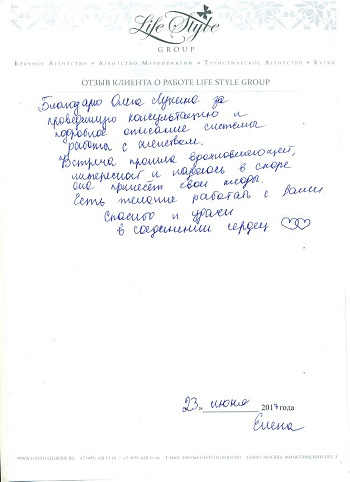 Life Style
GROUP
Брачное Агентство • Агентство Мероприятий • Туристическое Агентство •
ОТЗЫВ КЛИЕНТА О РАБОТЕ LIFE STYLE GROUP
Благодарю за
проведенную консультацию и
подробное описание системы
работы с агентством.
Встреча прошла вдохновляющей,
интересной и надеюсь в скоре
она принесёт свои плоды.
Есть желание работать с вами
Спасибо и удачи
в соединении сердец
23 » июня 2017 года
Елена
WWW.LIFESTYLEGROUP.RU